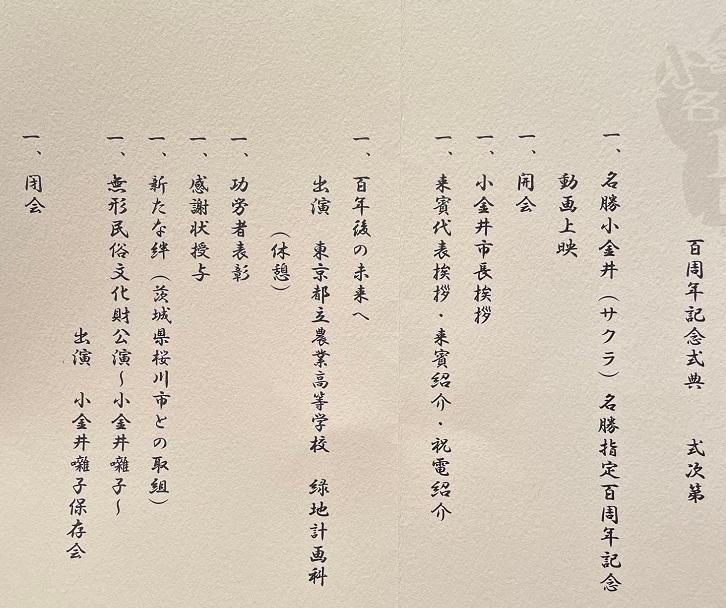 百周年記念式典　式次第
一、名勝小金井（サクラ）名勝指定百周年記念
動画上映
一、開会
一、小金井市長挨拶
一、来賓代表挨拶・来賓紹介・祝電紹介
一、百年後の未来へ
出演　東京都立農業高等学校　緑地計画科
（休憩）
一、功労者表彰
一、感謝状授与
一、新たな絆（茨城県桜川市との取組）
一、無形民俗文化財公演～小金井囃子～
出演　小金井囃子保存会
一、閉会